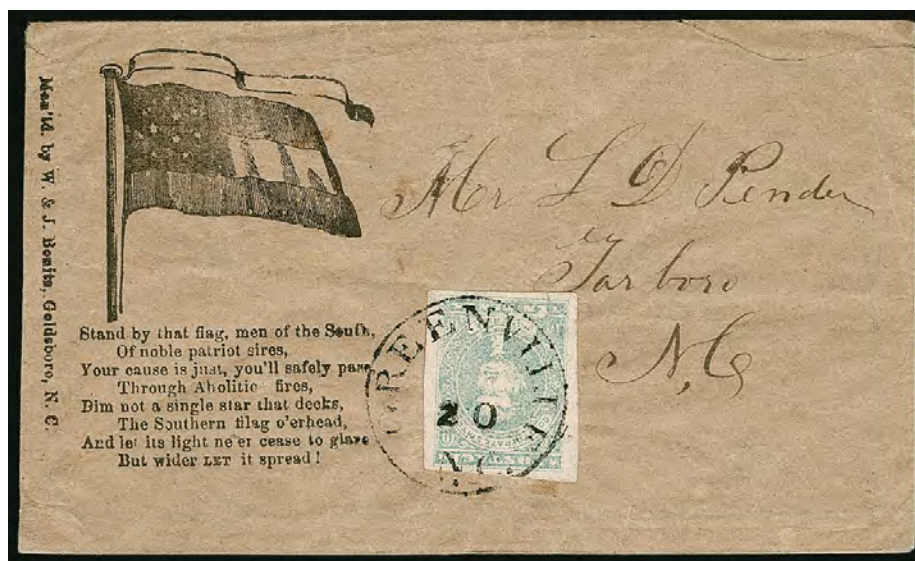 Man'fd. by W. & J. Bonitz, Goldsboro, N. C.
Stand by that flag, men of the South,
Of noble patriot sires,
Your cause is just, you'll safely pass
Through Abolitic fires,
Dim not a single star that decks,
The Southern filag o'erhead,
And let its light ne'er cease to glare
But wider LET it spread!
Mr L D Pender
Tarboro
N, C
GREENVILLE
20
N.C.